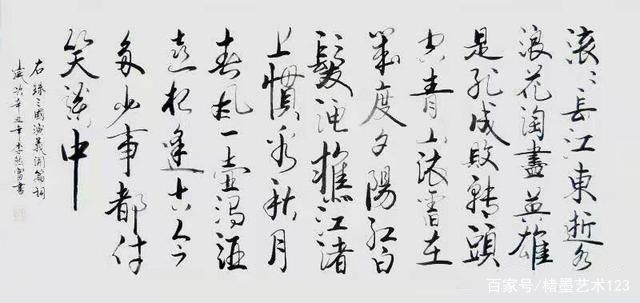 滚〻長江東逝水
浪花淘盡英雄
是非成敗轉頭
空青山依舊在
幾度夕陽紅白
髮漁樵江渚
上慣看秋月
春風一壺濁酒
喜相逢古今
多少事都付
笑談中
右録三國演義開篇詞
歲次辛丑年李書
百家号/楮墨艺术123